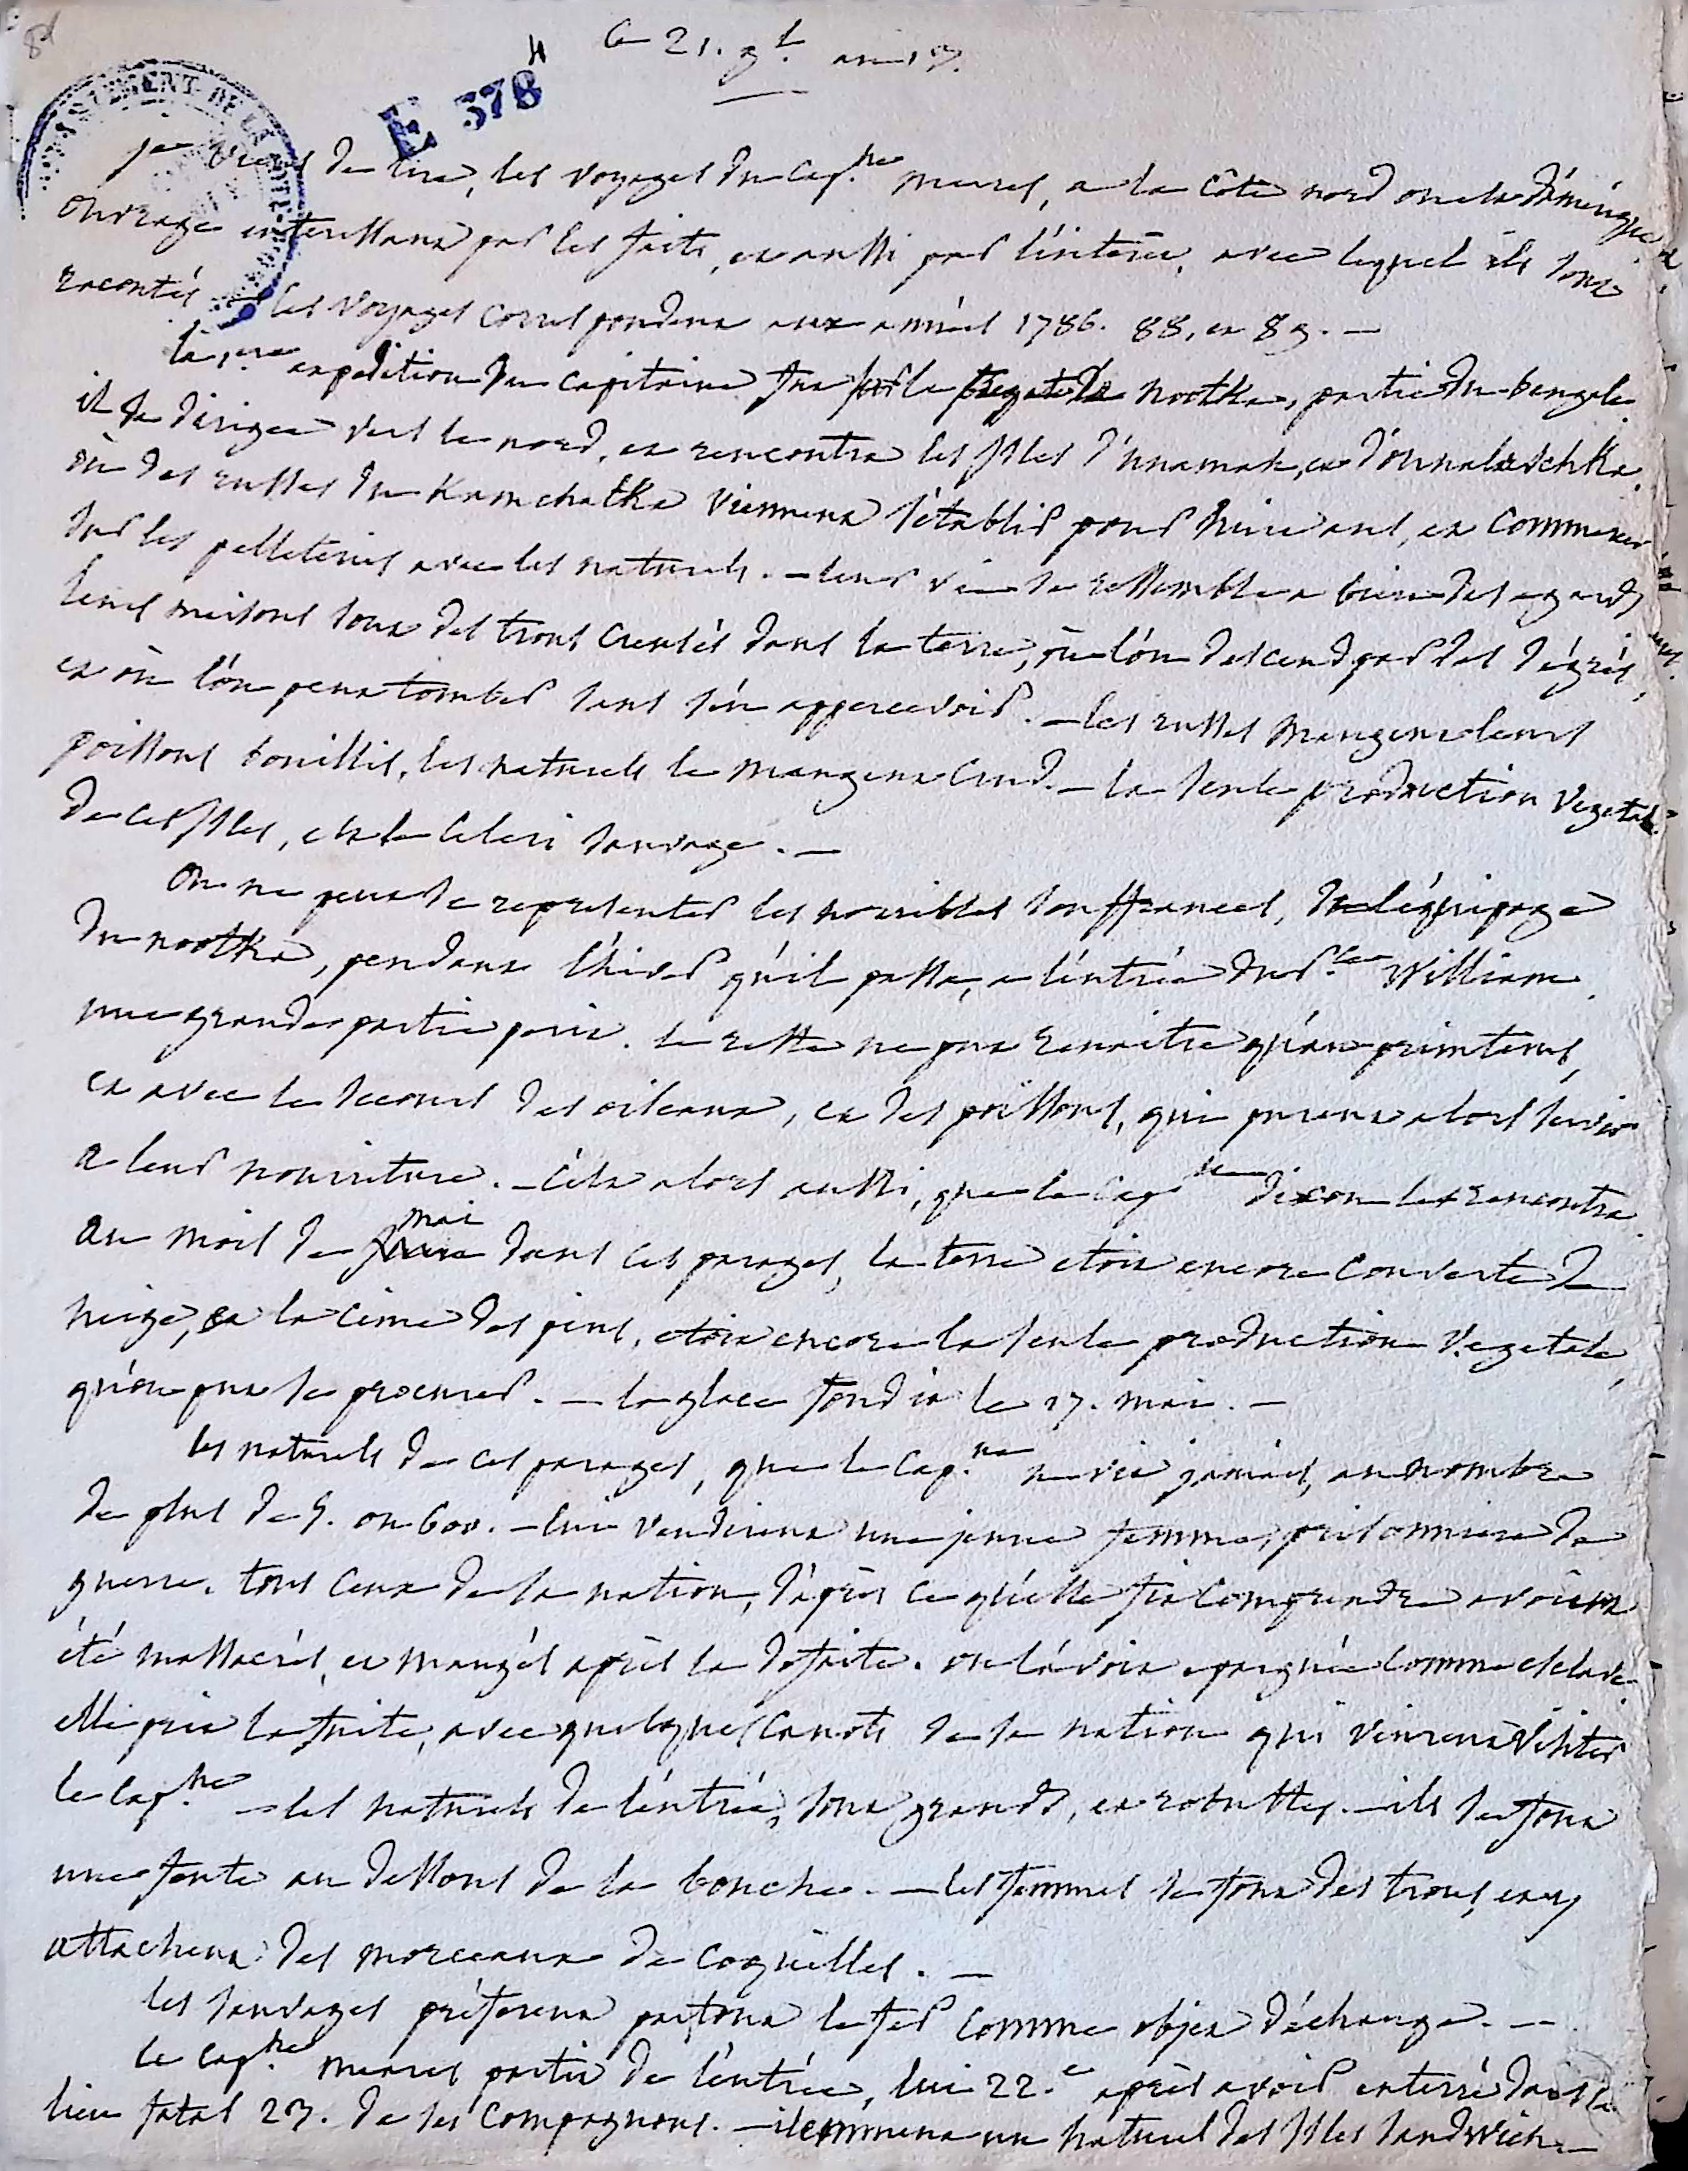 8d
4
Ce 21. 9b. an 17.
E 378
je viens de lire, les voyages du Cap.ne mears, a la Côte nord ouest d'amérique
ouvrage interessant par les faits, et aussi par l'intérêt, avec lequel ils sont
racontés — les voyages correspondent aux années 1786. 88, et 89. —
la 1.ere expedition du capitaine fut sur la fregate le nootka, partie du bengale.
il se dirigea vers le nord, et rencontra les isles d'unamak, et d'ounalaschka.
où des russes du Kamchatka viennent s'établir pour huit ans, et commercer
sur les pelleteries avec les naturels. — leur vie se ressemble a bien des egards
leurs maisons sont des trous creusés dans la terre, où l'on descend par des dégrés,
et où l'on peut tomber sans s'en appercevoir. — les russes mangent leurs
poissons bouillis, les naturels le mangent crud. — la seule production vegetale
de ces isles, est le celeri sauvage. —
On ne peut se representer les horribles souffrances, de l'équipage
du nootka, pendant l'hiver qu'il passa, a l'entrée du p.ce William.
une grande partie perit. le reste ne put renaitre qu'au printems,
et avec le secours des oiseaux, et des poissons, qui purent alors servir
a leur nourriture. — C'est alors aussi, que le cap.ne dixon les rencontra.
au mois de mai dans ces parages, la terre etoit encore couverte de
neige, et la cime des pins, etoit encore la seule production vegetale,
qu'on put se procurer. — la glace fondit le 17. mai. —
les naturels de ces parages, que le Cap.ne ne vit jamais, au nombre
de plus de 5. ou 600. — lui vendirent une jeune femme, prisonniere de
guerre. tous ceux de sa nation, d'après ce qu'elle fit comprendre avoient
été massacrés, et mangés après la defaite. on l'avoit epargnée comme esclave.
elle prit la fuite, avec quelques canots de sa nation qui vinrent visiter
le Cap.ne — les naturels de l'entrée, sont grands, et robustes. — ils se font
une fente au dessous de la bouche. — les femmes se font des trous, et y
attachent des morceaux de coquilles. —
les sauvages préferent partout le fer comme objet d'échange. —
le Cap.ne mears partit de l'entrée, lui 22.e après avoir enterré dans ce
lieu fatal 23. de ses compagnons. — il emmena un naturel des isles Sandwich —